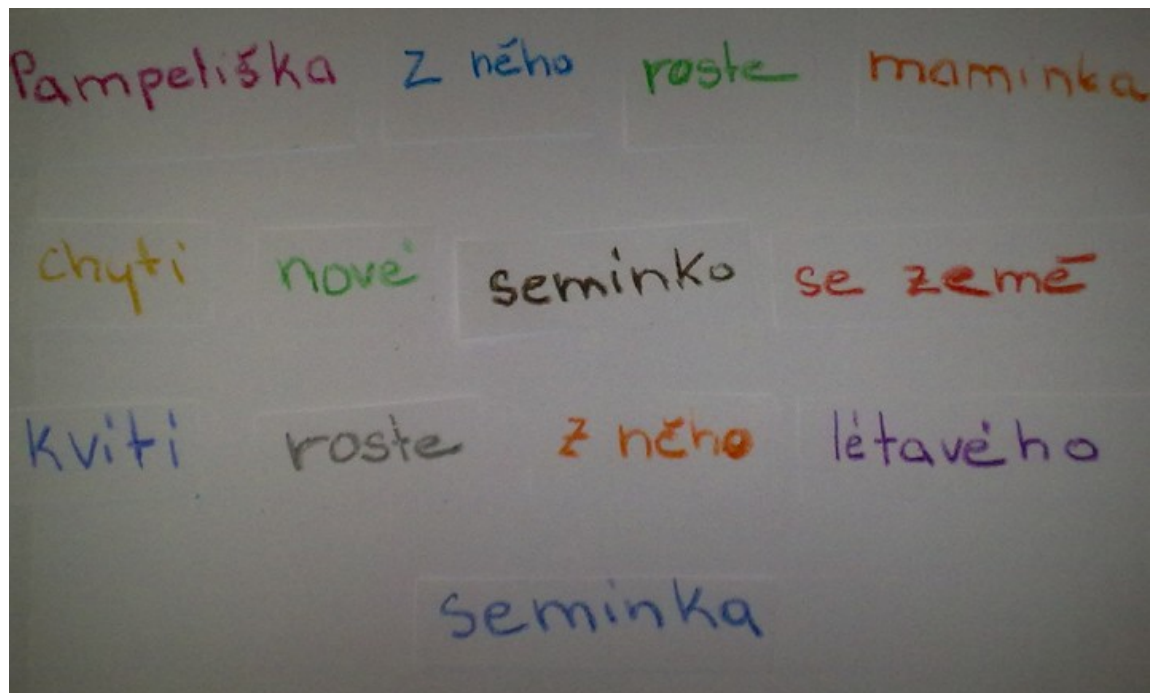 Pampeliška z něho roste maminka
chytí nové semínko se země
kvítí roste z něho létavého
semínka